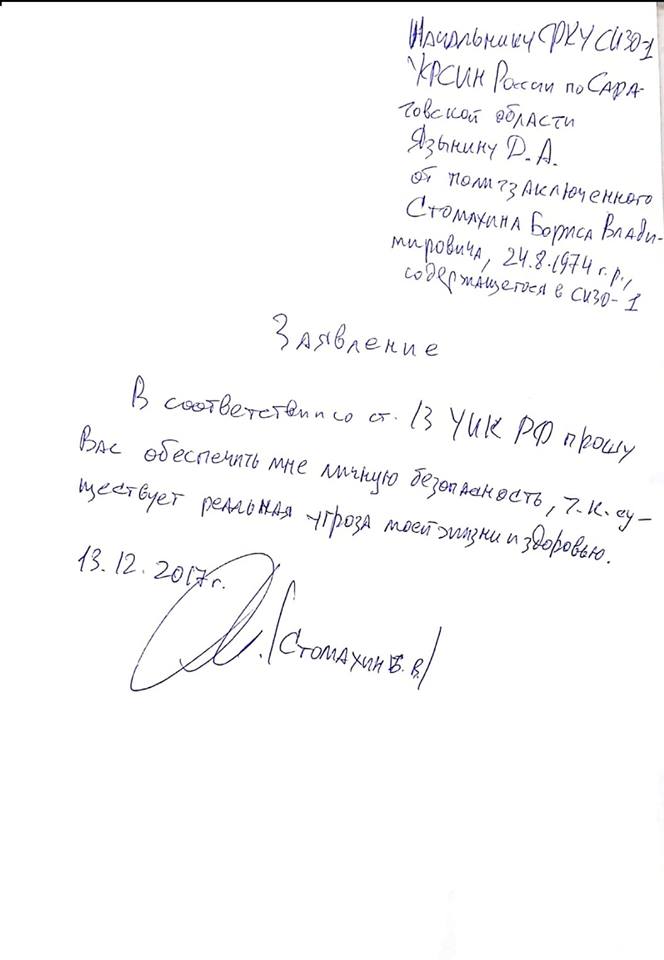 Начальнику ФКУ СИЗО-1
УФСИН России по Сара-
товской области
Язынину Д.А.
от политзаключенного
Стомахина Бориса Влади-
мировича, 24.8.1974 г.р.,
содержащегося в СИЗО-1
Заявление
В соответствии со ст. 13 УИК РФ прошу
Вас обеспечить мне личную безопасность, т.к. су-
ществует реальная угроза моей жизни и здоровью.
13.12.2017 г.
/Стомахин Б.В./